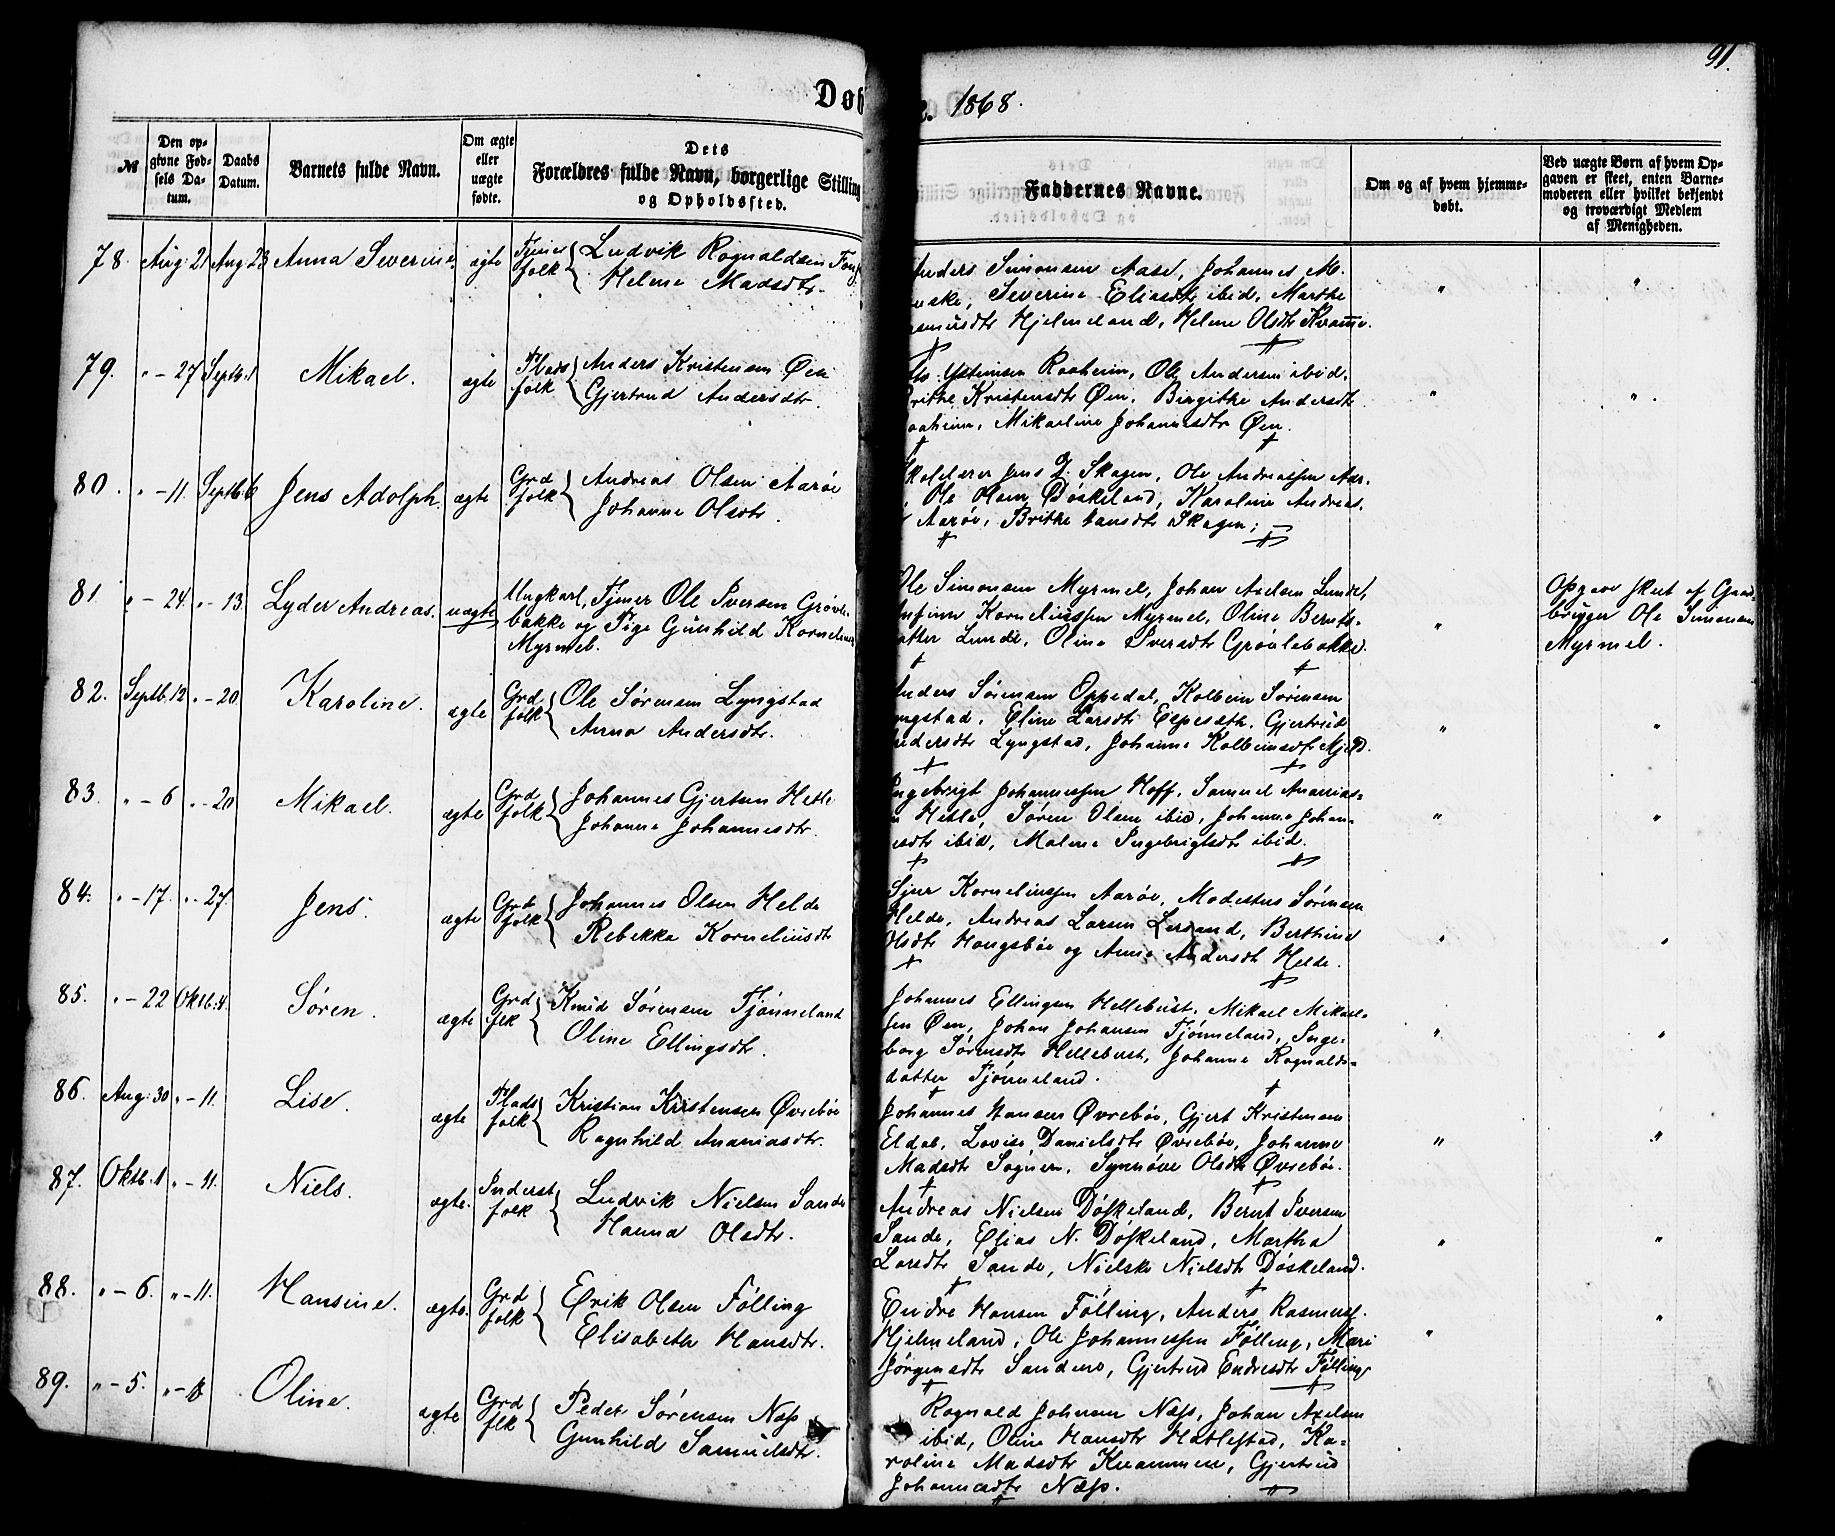 91.
Døb
1868.
№
Den op-
givne Fød-
sels Da-
tum.
Daabs
Datum.
Barnets fulde Navn.
Om ægte
eller
uægte
fødte.
Dets
Forældres fulde Navn, borgerlige Stilling
og Opholdssted.
Faddernes Navne.
Om og af hvem hjemme-
døbt.
Ved uægte Børn af hvem Op-
gaven er skeet, enten Barne-
moderen eller hvilket bekjendt
og troværdigt Medlem
af Menigheden.
78. Aug: 21 Aug 23 Anna Severine. ægte Tjener folk Ludvik Rognaldsen
Helene Madsdtr.
Anders Simonsen Aase, Johannes M.
Severine Eliasdtr ibid, Marthe
Hjelmeland, Helene Olsdtr Kvamme.
79. " - 27 Septb. 1 Mikael. ægte Plads folk Anders Kristensen Øen
Gjertrud Andersdtr.
Ystensen Raaheim, Ole Andersen ibid,
Brithe Kristensdtr Øen, Birgithe Andersdtr
Raaheim, Mikaeline Johannesdtr Øen.
80. " - 11. Septb. 6 Jens Adolph. ægte Grd folk Andreas Olsen Aarøe
Johanne Olsdtr.
Skolelærer Jens J. Skagen, Ole Andreassen Aar-
Ole Olsen Døskeland, Karoline Andreas-
Aarøe, Brithe Hansdtr Skagen;
81 " - 24. " - 13. Lyder Andreas. uægte Ungkarl, Tjener Ole Iversen Grøvle-
bakke og Pige Gunhild Kornelius
Myrmel.
Ole Simonsen Myrmel, Johan Axelsen Lunde,
Korneliussen Myrmel, Oline Bernts-
datter Lunde, Oline Iversdtr Grøvlebakke.
Opgave skeet af Gaard-
bruger Ole Simonsen
Myrmel.
82. Septb. 12 " - 20. Karoline. ægte Grd folk Ole Sørensen Lyngstad
Anna Andersdtr.
Anders Sørensen Oppedal, Kolbein Sørensen
Lyngstad, Eline Larsdtr Espesæth, Gjertrud
Andersdtr Lyngstad, Johanne Kolbeinsdtr
83. " - 6 " - 20 Mikael. ægte Grd folk Johannes Gjertsen Hetle
Johanne Johannesdtr.
Ingebrigt Johannessen Hoff, Samuel Ananias-
Hetle, Søren Olsen ibid, Johanne Johan-
nesdtr ibid, Malene Ingebrigtsdtr ibid.
84. " - 17. " - 27. Jens. ægte Grd folk Johannes Olsen Helde
Rebekka Korneliusdtr
Sjur Korneliussen Aarøe, Modestus Sørensen
Helde, Andreas Larsen Lersand, Berthine
Olsdtr Hougsbøe og Anne Andersdtr Helde.
85. " - 22 Oktb. 4. Søren. ægte Grd flk Knud Sørensen Tjønneland
Oline Ellingsdtr.
Johannes Ellingsen Hellebust, Mikael Mikael-
sen Øen, Johan Johansen Tjønneland, Inge-
borg Sørensdtr Hellebust, Johanne Rognalds-
datter Tjønneland.
86. Aug: 30 " - 11. Lise. ægte Plads folk Kristian Kristensen Øvrebøe
Ragnhild Ananiasdtr.
Johannes Hansen Øvrebøe, Gjert Kristensen
Eldal, Lovise Danielsdtr Øvrebøe, Johanne
Madsdtr Sognen, Synnøve Olsdtr Øvrebøe.
87. Oktb. 1 " - 11. Niels. ægte. Inderst folk Ludvik Nielsen Sande
Hanna Olsdtr.
Andreas Nielsen Døskeland, Bernt Iversen
Sande, Elias N. Døskeland, Martha
Larsdtr Sande, Nielske Nielsdtr Døskeland.
88. " - 6. " - 11. Hansine. ægte. Grd folk Erik Olsen Følling
Elisabeth Hansdtr.
Endre Hansen Følling, Anders Rasmuss.
Hjelmeland, Ole Johannessen Følling, Mari
Jørgensdtr Sandene, Gjertrud Endresdtr Følling
89. " - 5. " - Oline. ægte Grd flk Peder Sørensen Næss
Gunhild Samuelsdtr.
Rognald Johnsen Næss, Johan Axelsen
ibid, Oline Hansdtr Hatlestad, Ka-
roline Madsdtr Kvammen, Gjertrud
Johannesdtr Næss.